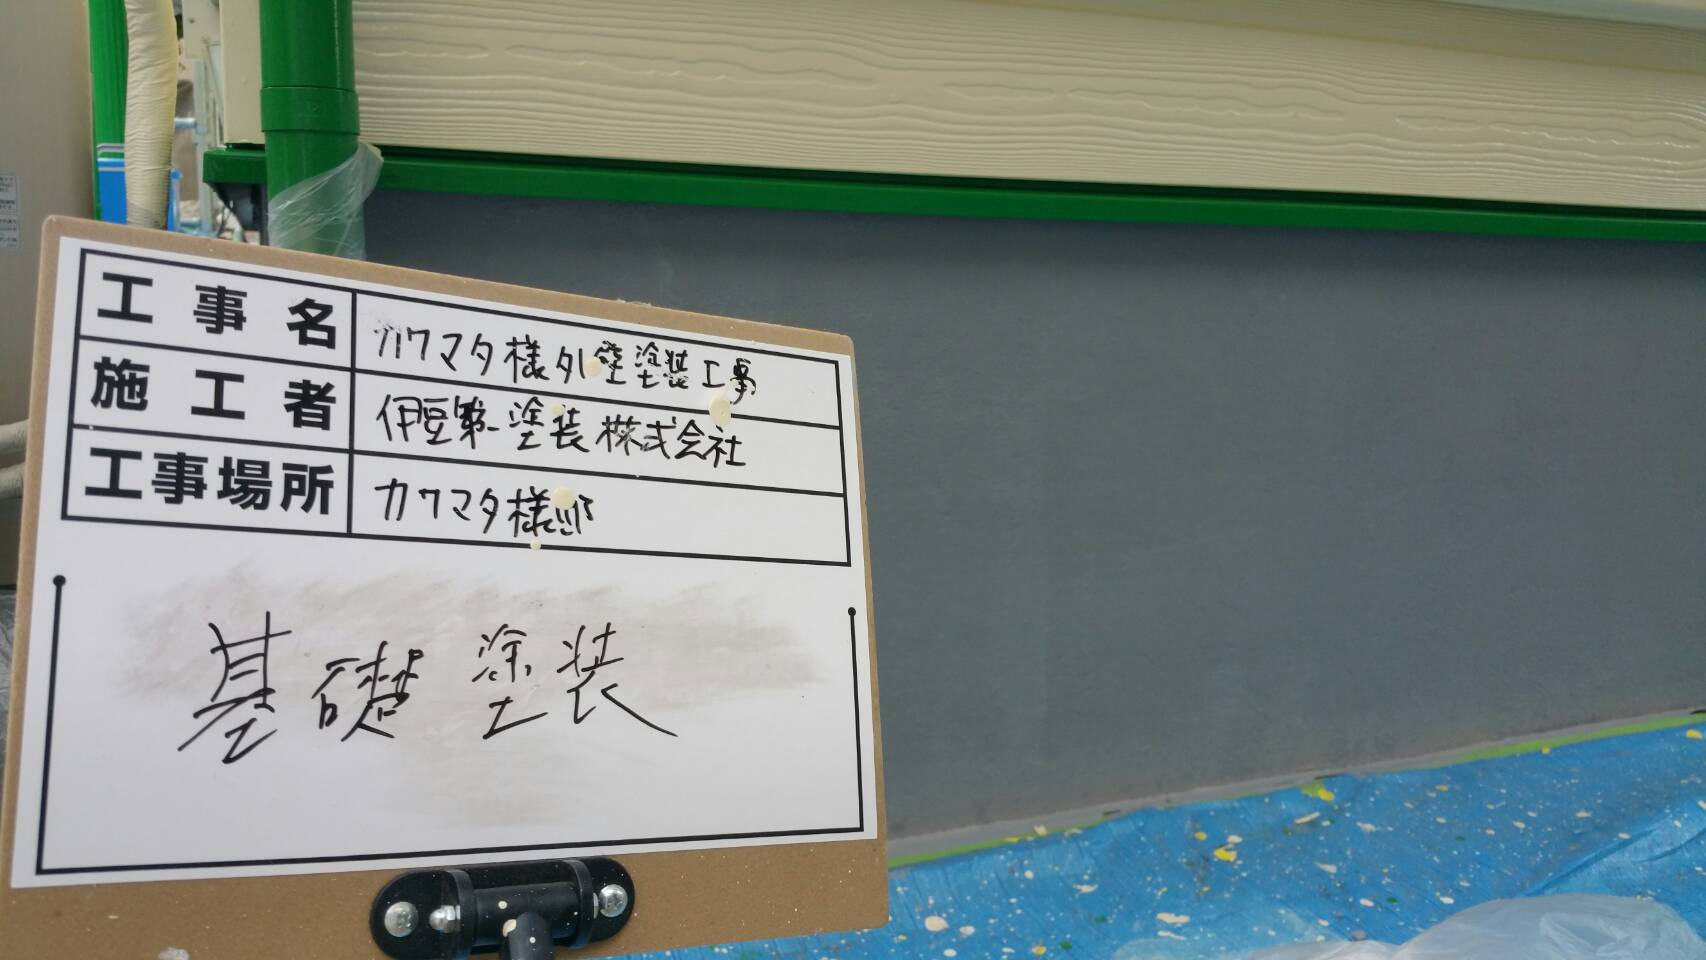 工事名 カワマタ様外壁塗装工事
施工者 伊豆第一塗装株式会社
工事場所 カワマタ様邸
基礎塗装